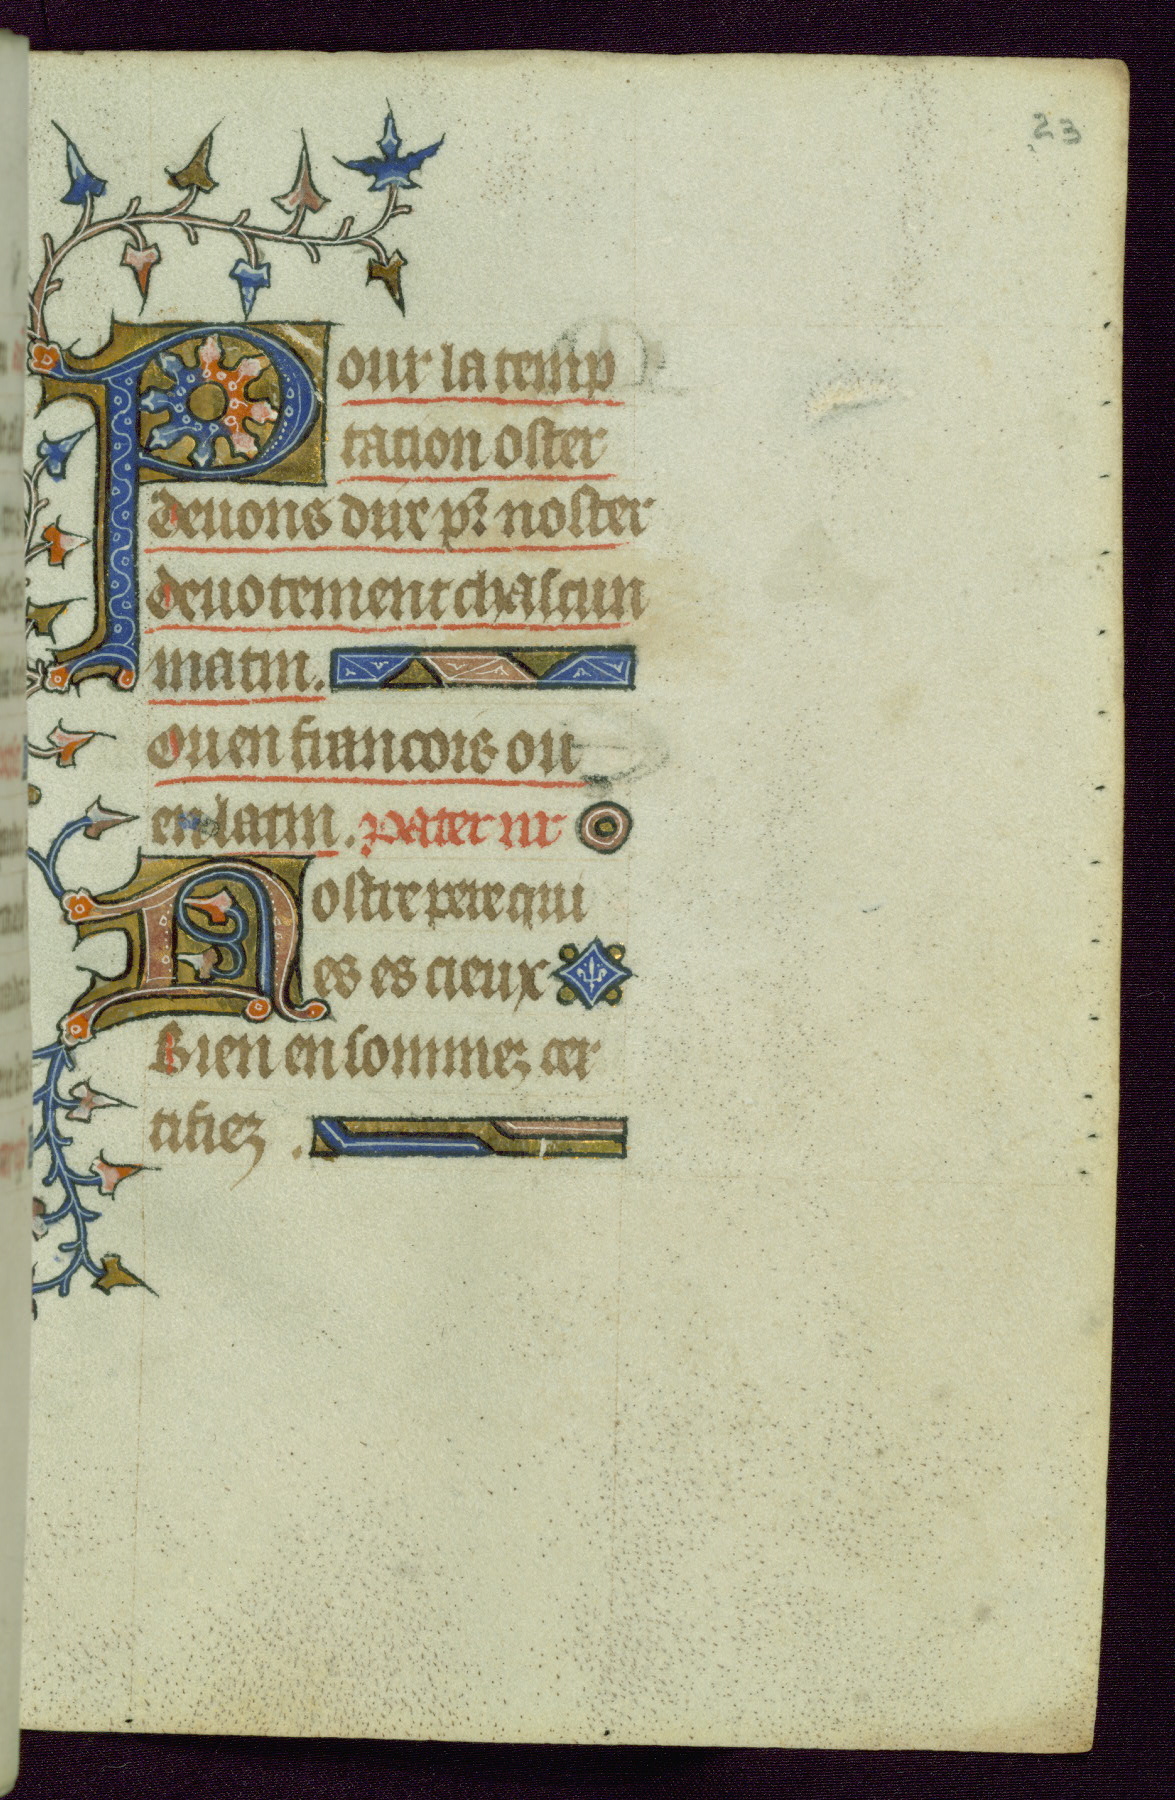 23
Pour la temp
tacion oster
deuons dire pr̃ noster
deuotement chascun
matin.
Ou en francois ou
en latin. pater nr
Nostre pere qui
es es cieux
Bien en sommez cer
tifiez .